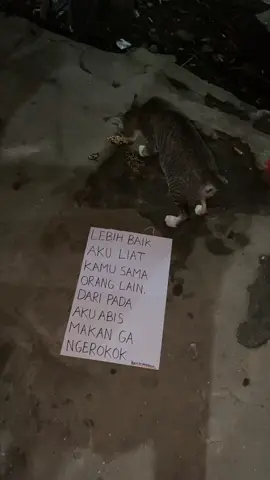 LEBIH BAIK
AKU LIAT
KAMU SAMA
ORANG LAIN.
DARI PADA
AKU ABIS
MAKAN GA
NGEROKOK